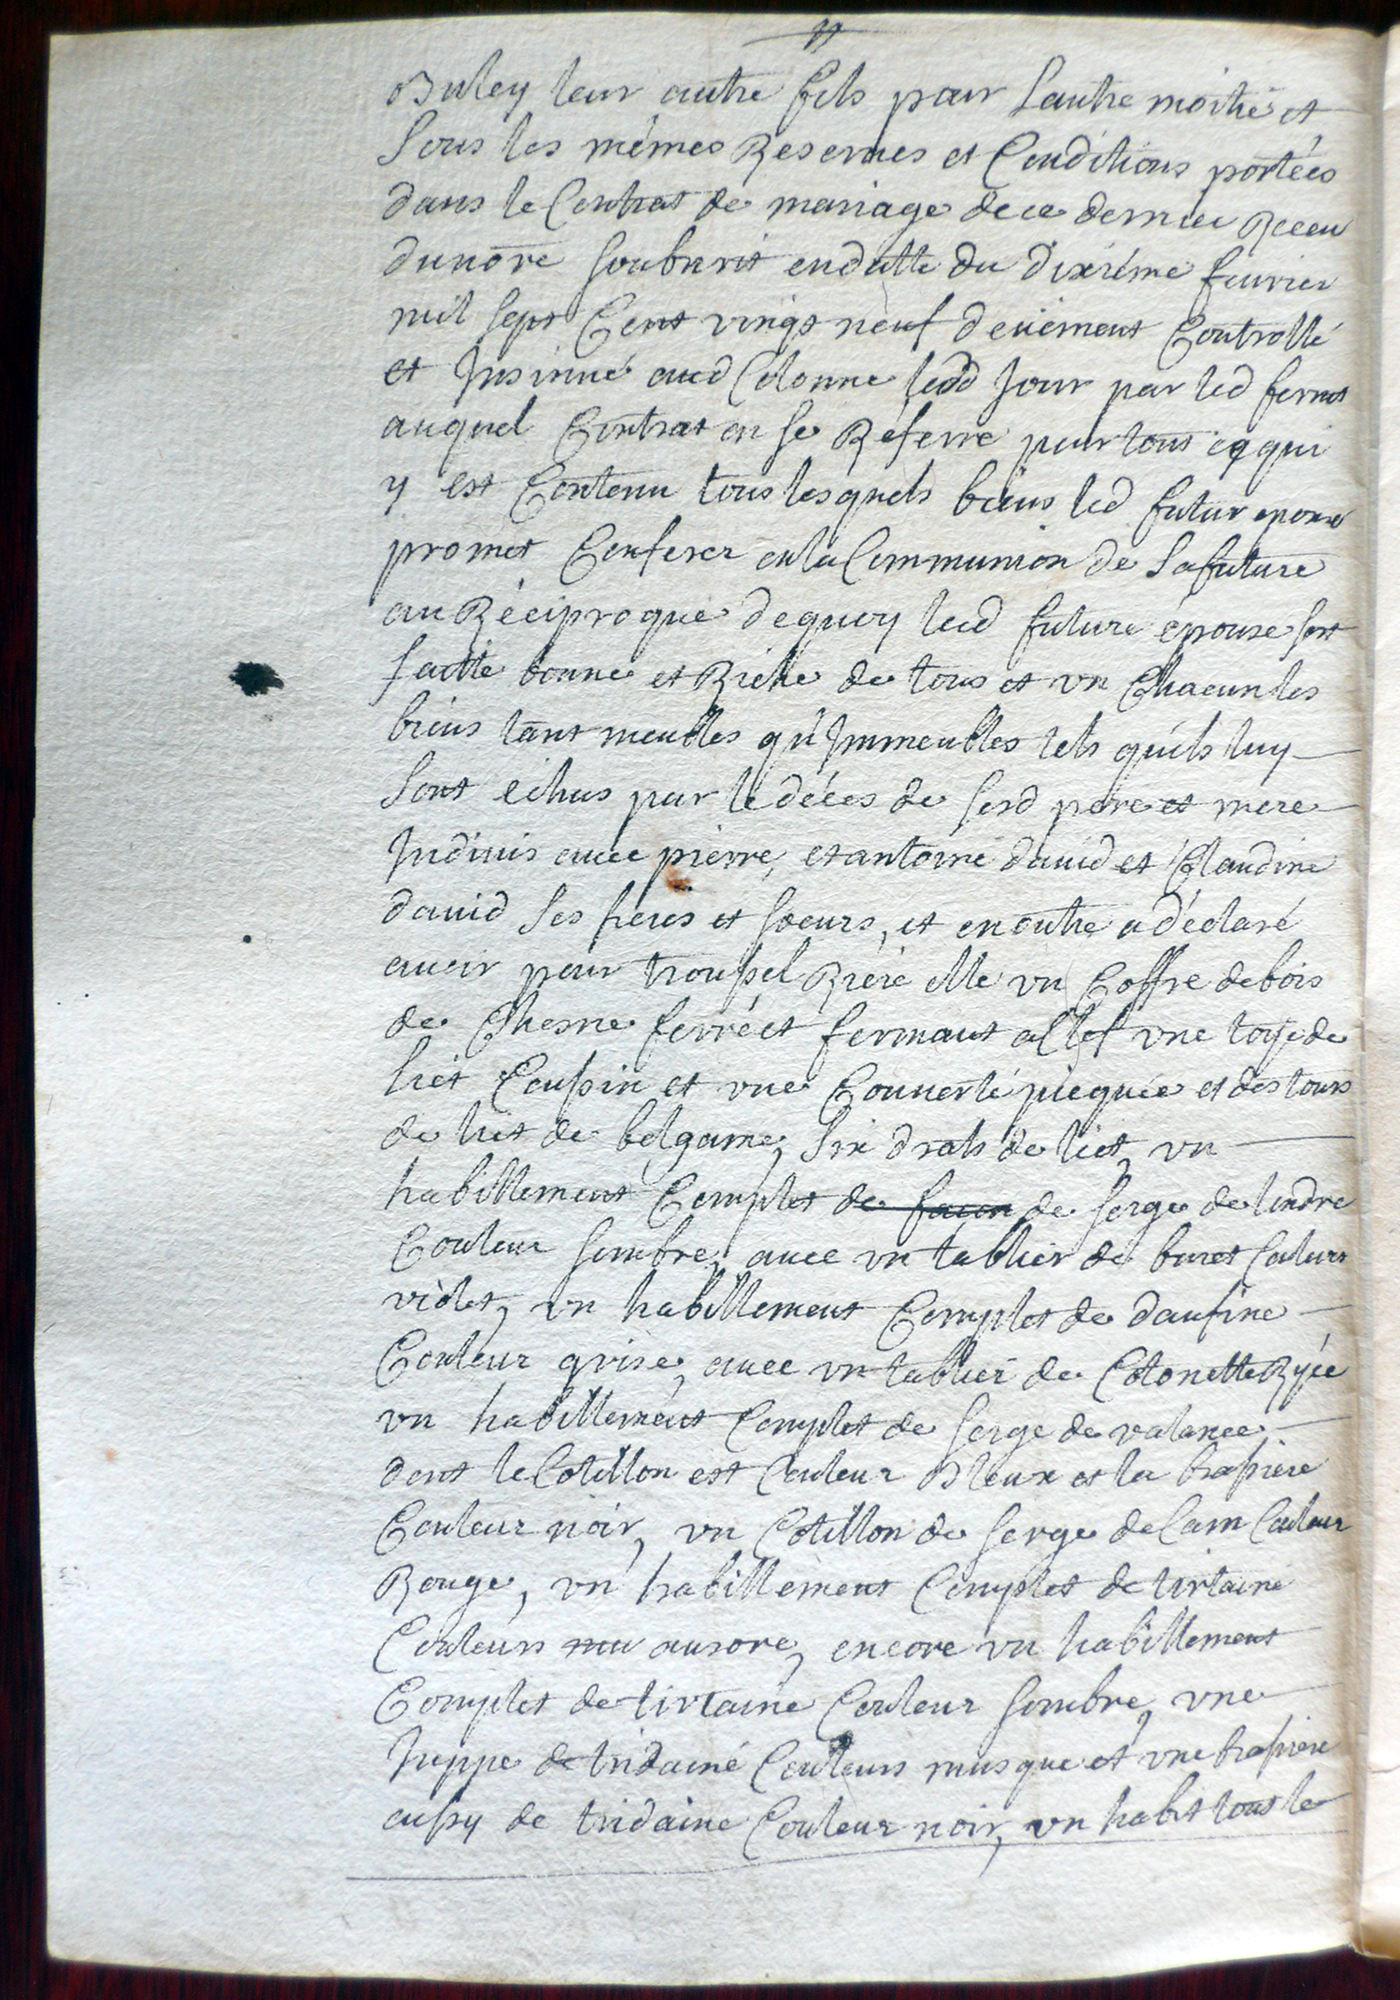 Buley leur autre fils pour Lautre moitié et
Sous les mêmes Reserues et Conditions portées
dans le Contrat de mariage de ce dernier Receu
du notre Soubsné en datte du dixiéme feurier
mil sept Cent vingt neuf deuëment Controllé
et Jnsinué aud Colonne led Jour par led
auquel Contrat on se Réferre pour tout ce qui
y est Contenu tous lesquels biens led futur epoux
promet Conferer en la Communion de Sa future
au Réciproque dequoy lad future épouse sest
faitte bonne et Riche de tous et vn Chacun les
biens tant meubles qu'Jmmeubles tels qu'ils luy
Sont échus par le déées de sesd pere et mere
Jndiuis auec pierre, et antoine dauid et Claudine
dauid Ses freres et soeurs, et en outre a déclaré
auoir pour troussel Riére elle vn Coffre de bois
de Chesne ferré et fermant a Clef vne toye de
liet Coussin et vne Couuerte picquée et des tours
de liet de belgame, Six drats de liet, vn
habillement Complet de façon de serge de londre
Couleur sombre, auec vn tablier de buret Couleur
violet, vn habillement Complet de daufine
Couleur grise, auec vn tablier de Cotonette Ryée
vn habillement Complet de serge de valance
dont le Cotillon est Couleur Bleux et la brassiere
Couleur noir, vn Cotillon de serge de Cam Couleur
Rouge, vn habillement Complet de tirtaine
Couleurs aurore, encore vn habillement
Complet de tirtaine Couleur sombre, vne
Juppe de tridainé Couleurs musque et vne brassiere
aussy de tridaine Couleur noir, vn habit tout le